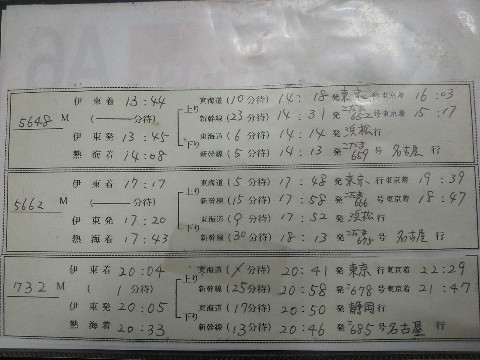 伊東着 13:44 東海道(10分待) 14:18発 東京行東京着 16:03
5648M (―分待) 上り 新幹線(23分待) 14:31発 こだま652号東京着 15:17
伊東発 13:45 下り 東海道(6分待) 14:14発 浜松行
熱海着 14:08 新幹線(5分待) 14:13発 こだま659号 名古屋行
伊東着 17:17 東海道(5分待) 17:48発 東京行東京着 19:39
5662M (―分待) 上り 新幹線(15分待) 17:58発 こだま666号東京着 18:47
伊東発 17:20 下り 東海道(9分待) 17:52発 浜松行
熱海着 17:43 新幹線(30分待) 18:13発 こだま675号 名古屋行
伊東着 20:04 東海道(分待) 20:41発 東京行東京着 22:29
732M (1分待) 上り 新幹線(25分待) 20:58発 678号東京着 21:47
伊東発 20:05 下り 東海道(17分待) 20:50発 静岡行
熱海着 20:33 新幹線(13分待) 20:46発 685号 名古屋行